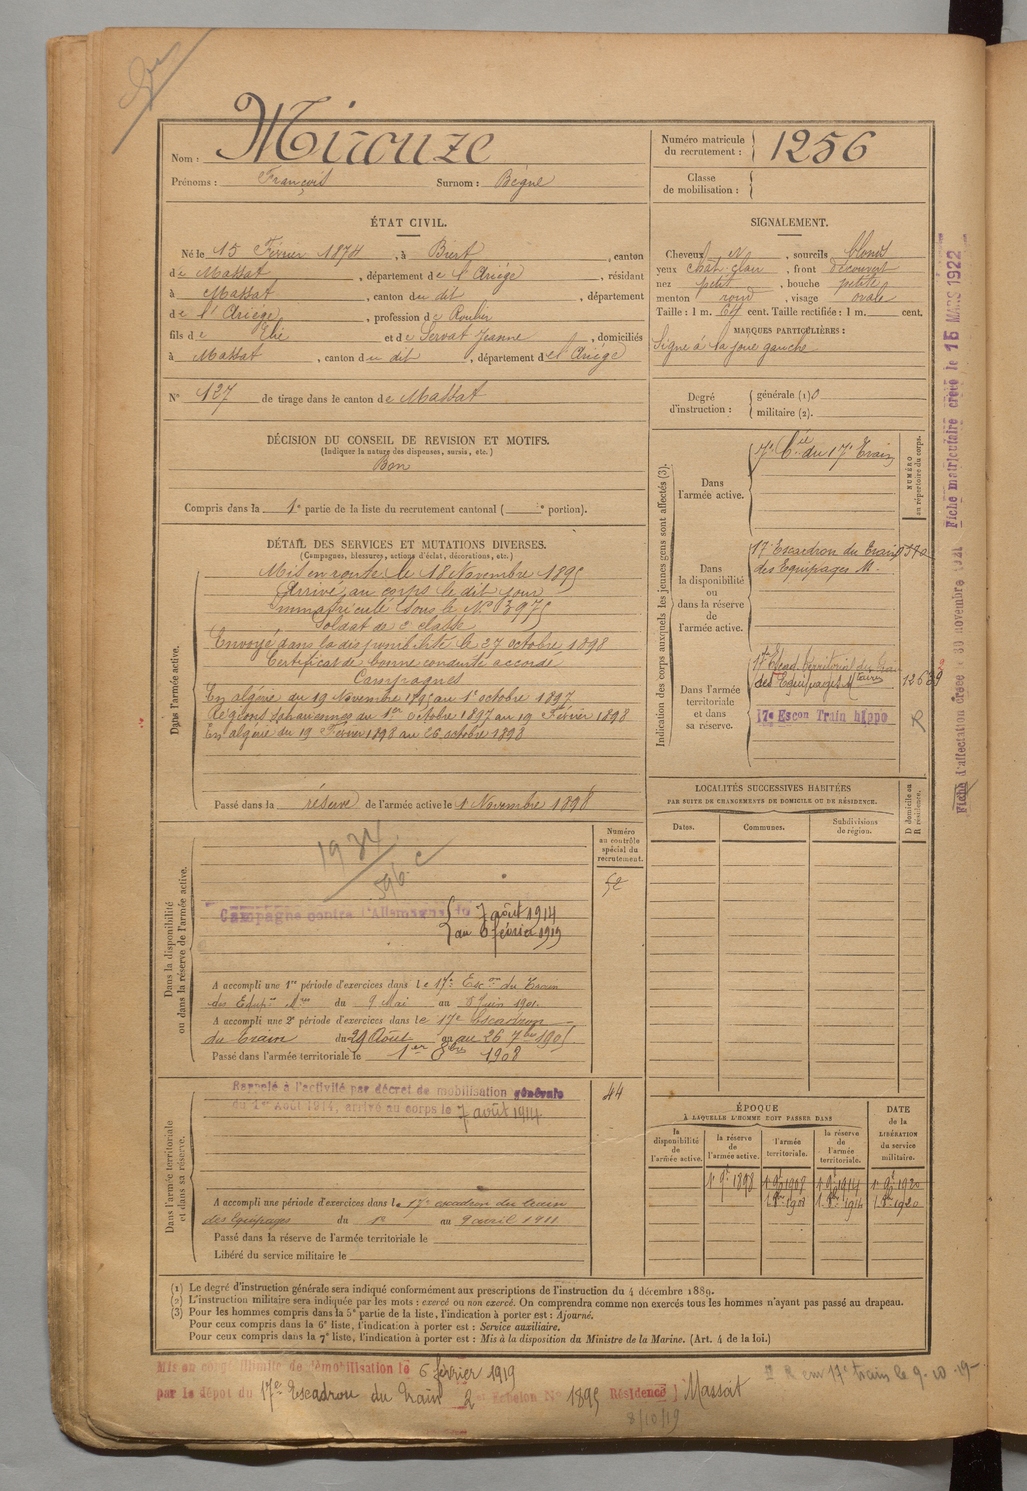 Nom : Mirouze
Prénoms : François Surnom : Bégné
Numéro matricule du recrutement : 1256
Classe de mobilisation :
ÉTAT CIVIL.
Né le 15 Février 1874, à Biert, canton
de Massat, département de l'Ariège, résidant
à Massat, canton du dit, département
de l'Ariège, profession de Roulier
fils de Elie et de Servat Jeanne, domiciliés
à Massat, canton du dit, département de l'Ariège
N° 127 de tirage dans le canton de Massat
SIGNALEMENT.
Cheveux N, sourcils blond
yeux chât. clair, front découvert
nez petit, bouche petite
menton rond, visage ovale
Taille : 1 m. 64 cent. Taille rectifiée : 1 m. cent.
MARQUES PARTICULIÈRES :
Signe à la joue gauche
Degré d'instruction : générale (1) 0
militaire (2).
DÉCISION DU CONSEIL DE REVISION ET MOTIFS.
(Indiquer la nature des dispenses, sursis, etc.)
Bon
Compris dans la 1e partie de la liste du recrutement cantonal ( e portion).
DÉTAIL DES SERVICES ET MUTATIONS DIVERSES.
(Campagnes, blessures, actions d'éclat, décorations, etc.)
Dans l'armée active.
Mis en route le 18 Novembre 1895
Arrivé au corps le dit jour
Immatriculé sous le N° 3975
Soldat de 2e classe
Envoyé dans la disponibilité le 27 octobre 1898
Certificat de bonne conduite accordé
Campagnes
En algérie du 19 Novembre 1895 au 1er octobre 1897
Régions sahariennes du 1er octobre 1897 au 19 Février 1898
En algérie du 19 Février 1898 au 26 octobre 1898
Passé dans la réserve de l'armée active le 1 Novembre 1898
Indication des corps auxquels les jeunes gens sont affectés (3).
NUMÉRO au répertoire du corps.
Dans l'armée active.
7e Cie du 17e Train
Dans la disponibilité ou dans la réserve de l'armée active.
17e Escadron du Train
des Equipages M.
Dans l'armée territoriale et dans sa réserve.
17e Escad. territorial du Train
des Equipages Mtaires
17e Escon Train hippo
R
Fiche matriculaire créée le 15 MARS 1922
Fiche d'affectation créée le 30 novembre 1921
Dans la disponibilité ou dans la réserve de l'armée active.
Numéro au contrôle spécial du recrutement.
1934
596. C
52
Campagne contre l'Allemagne du 7 août 1914
au 6 février 1919
A accompli une 1re période d'exercices dans le 17e Escon du Train
des Equip. Mres du 9 Mai au 5 Juin 1901
A accompli une 2e période d'exercices dans le 17e Escadron
du Train du 29 Août au 26 7bre 1905
Passé dans l'armée territoriale le 1er 8bre 1908
LOCALITÉS SUCCESSIVES HABITÉES
PAR SUITE DE CHANGEMENTS DE DOMICILE OU DE RÉSIDENCE.
Dates. Communes. Subdivisions de région. D domicile ou R résidence.
Dans l'armée territoriale et dans sa réserve.
Rappelé à l'activité par décret de mobilisation générale
du 1er Août 1914, arrivé au corps le 7 août 1914
44
A accompli une période d'exercices dans le 17e escadron du train
des équipages du 1er au 9 avril 1911
Passé dans la réserve de l'armée territoriale le
Libéré du service militaire le
ÉPOQUE
À LAQUELLE L'HOMME DOIT PASSER DANS
DATE de la LIBÉRATION du service militaire.
la disponibilité de l'armée active. la réserve de l'armée active. l'armée territoriale. la réserve de l'armée territoriale.
1 9bre 1898 1 9bre 1908 1 9bre 1914 1 9bre 1920
1 8bre 1908 1 8bre 1914 1 8bre 1920
(1) Le degré d'instruction générale sera indiqué conformément aux prescriptions de l'instruction du 4 décembre 1889.
(2) L'instruction militaire sera indiquée par les mots : exercé ou non exercé. On comprendra comme non exercés tous les hommes n'ayant pas passé au drapeau.
(3) Pour les hommes compris dans la 5e partie de la liste, l'indication à porter est : Ajourné.
Pour ceux compris dans la 6e liste, l'indication à porter est : Service auxiliaire.
Pour ceux compris dans la 7e liste, l'indication à porter est : Mis à la disposition du Ministre de la Marine. (Art. 4 de la loi.)
Mis en congé illimité de démobilisation le 6 février 1919
par le dépôt du 17e Escadron du Train 2 Echelon N° 1895 Résidence Massat
R em 17e train le 9-10-19
8/10/19